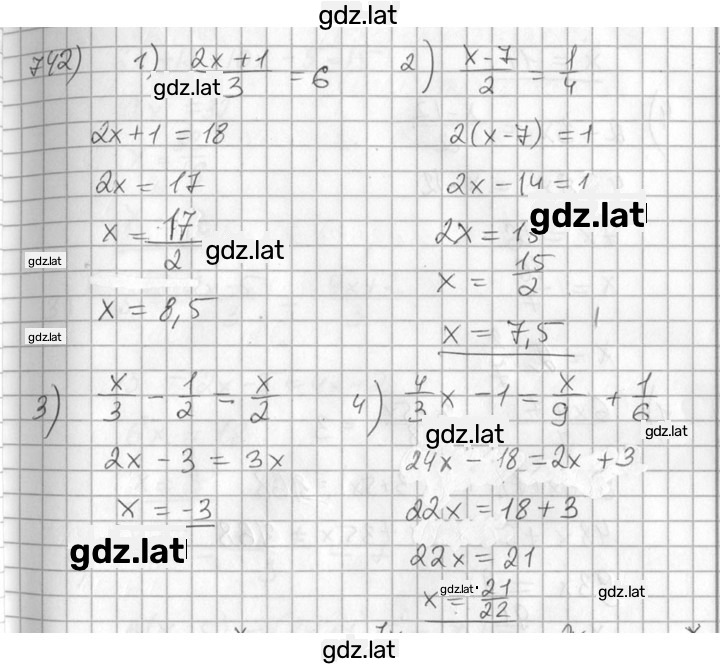 gdz.lat
742) 1) (2x+1)/3 = 6
gdz.lat
2x+1 = 18
2x = 17
x = 17/2
gdz.lat
gdz.lat
x = 8,5
gdz.lat
2) (x-7)/2 = 1/4
2(x-7) = 1
2x-14 = 1
gdz.lat
2x = 15
x = 15/2
x = 7,5
3) x/3 - 1/2 = x/2
2x - 3 = 3x
x = -3
gdz.lat
4) 4/3 x - 1 = x/9 + 1/6
gdz.lat
gdz.lat
24x - 18 = 2x + 3
22x = 18 + 3
22x = 21
gdz.lat
x = 21/22
gdz.lat
gdz.lat